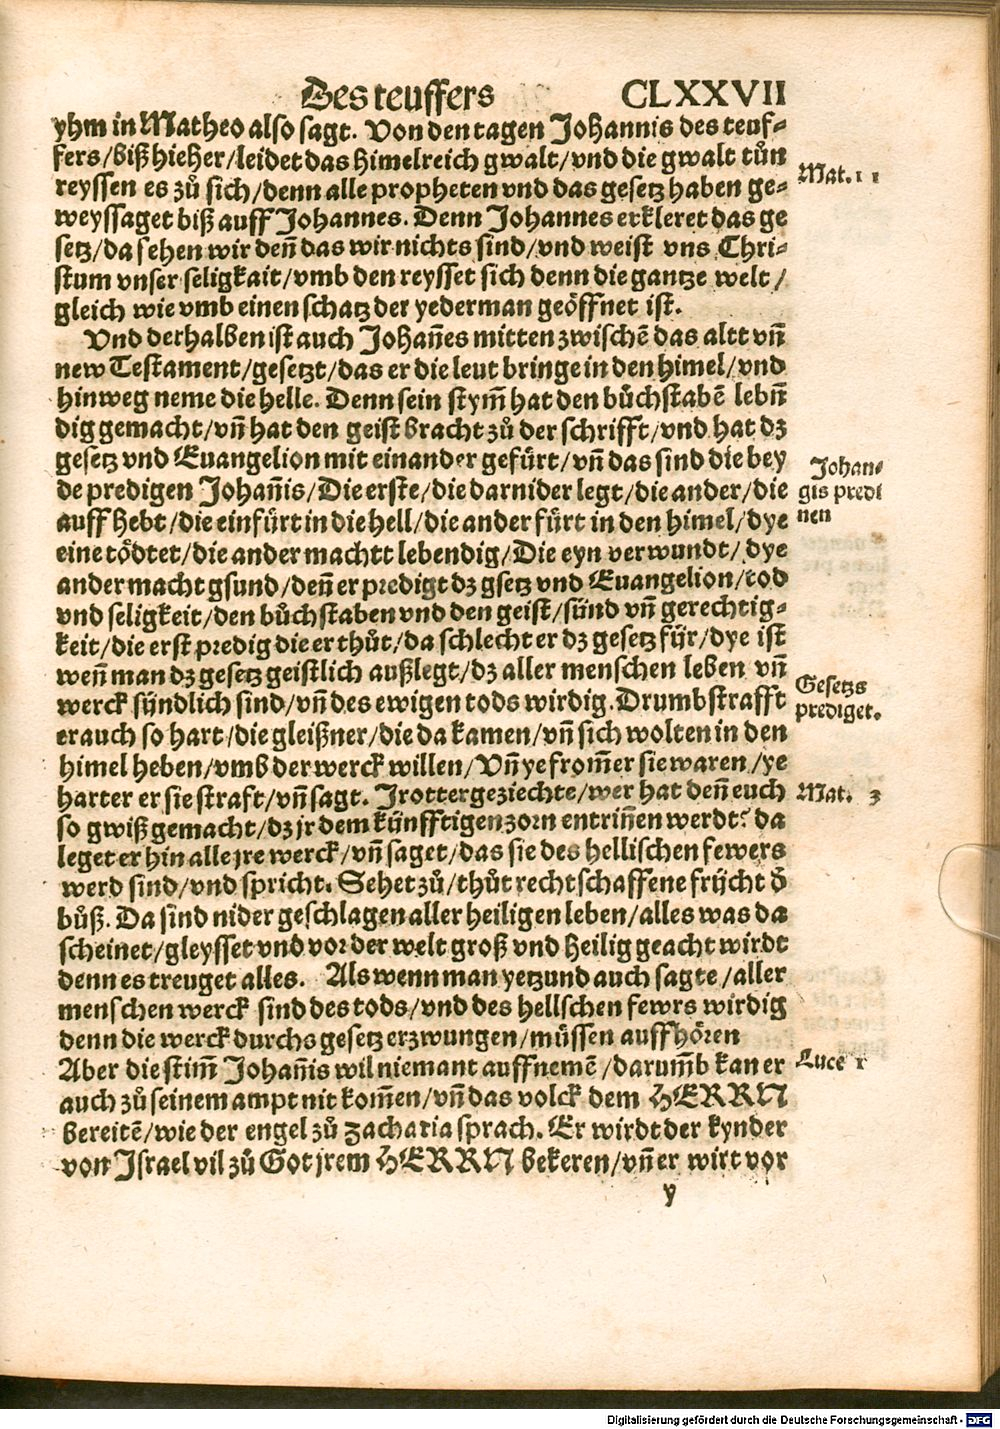 Des teuffers CLXXVII
yhm in Matheo also sagt. Von den tagen Johannis des teuf-
fers/biß hieher/leidet das himelreich gwalt/vnd die gwalt tůn
Mat. 11
reyssen es zů sich/denn alle propheten vnd das gesetz haben ge-
weyssaget biß auff Johannes. Denn Johannes erkleret das ge
setz/da sehen wir deñ das wir nichts sind/vnd weist vns Chri-
stum vnser seligkait/vmb den reysset sich denn die gantze welt/
gleich wie vmb einen schatz der yederman geöffnet ist.
Vnd derhalben ist auch Johañes mitten zwischē das altt vñ
new Testament/gesetzt/das er die leut bringe in den himel/vnd
hinweg neme die helle. Denn sein stym̄ hat den bůchstabē lebñ
dig gemacht/vñ hat den geist bracht zů der schrifft/vnd hat dz
gesetz vnd Euangelion mit einander gefürt/vñ das sind die bey
Johan-
de predigen Johañis/Die erste/die darnider legt/die ander/die
gis predi
auff hebt/die ein fürt in die hell/die ander fürt in den himel/dye
nen
eine tödtet/die ander machtt lebendig/Die eyn verwundt/dye
ander macht gsund/deñ er predigt dz gsetz vnd Euangelion/tod
vnd seligkeit/den bůchstaben vnd den geist/sünd vñ gerechtig-
keit/die erst predig die er thůt/da schlecht er dz gesetz für/dye ist
weñ man dz gesetz geistlich außlegt/dz aller menschen leben vñ
Gesetzs
werck sündlich sind/vñ des ewigen tods wirdig. Drumb strafft
prediget.
er auch so hart/die gleißner/die da kamen/vñ sich wolten in den
himel heben/vmb der werck willen/Vñ ye from̄er sie waren/ye
harter er sie straft/vñ sagt. Jr ottergeziechte/wer hat deñ euch
Mat. 3
so gwiß gemacht/dz jr dem künfftigen zorn entriñen werdt? da
leget er hin alle jre werck/vñ saget/das sie des hellischen fewers
werd sind/vnd spricht. Sehet zů/thůt rechtschaffene frücht ð
bůß. Da sind nider geschlagen aller heiligen leben/alles was da
scheinet/gleysset vnd vor der welt groß vnd heilig geacht wirdt
denn es treuget alles. Als wenn man yetzund auch sagte/aller
menschen werck sind des tods/vnd des hellschen fewrs wirdig
denn die werck durchs gesetz erzwungen/müssen auff hören
Aber die stim̄ Johañis wil niemant auffnemē/darum̄b kan er
Luce 1
auch zů seinem ampt nit kom̄en/vñ das volck dem HERRN
bereitē/wie der engel zů Zacharia sprach. Er wirdt der kynder
von Jsrael vil zů Got jrem HERRN bekeren/vñ er wirt vor
y
Digitalisierung gefördert durch die Deutsche Forschungsgemeinschaft - DFG